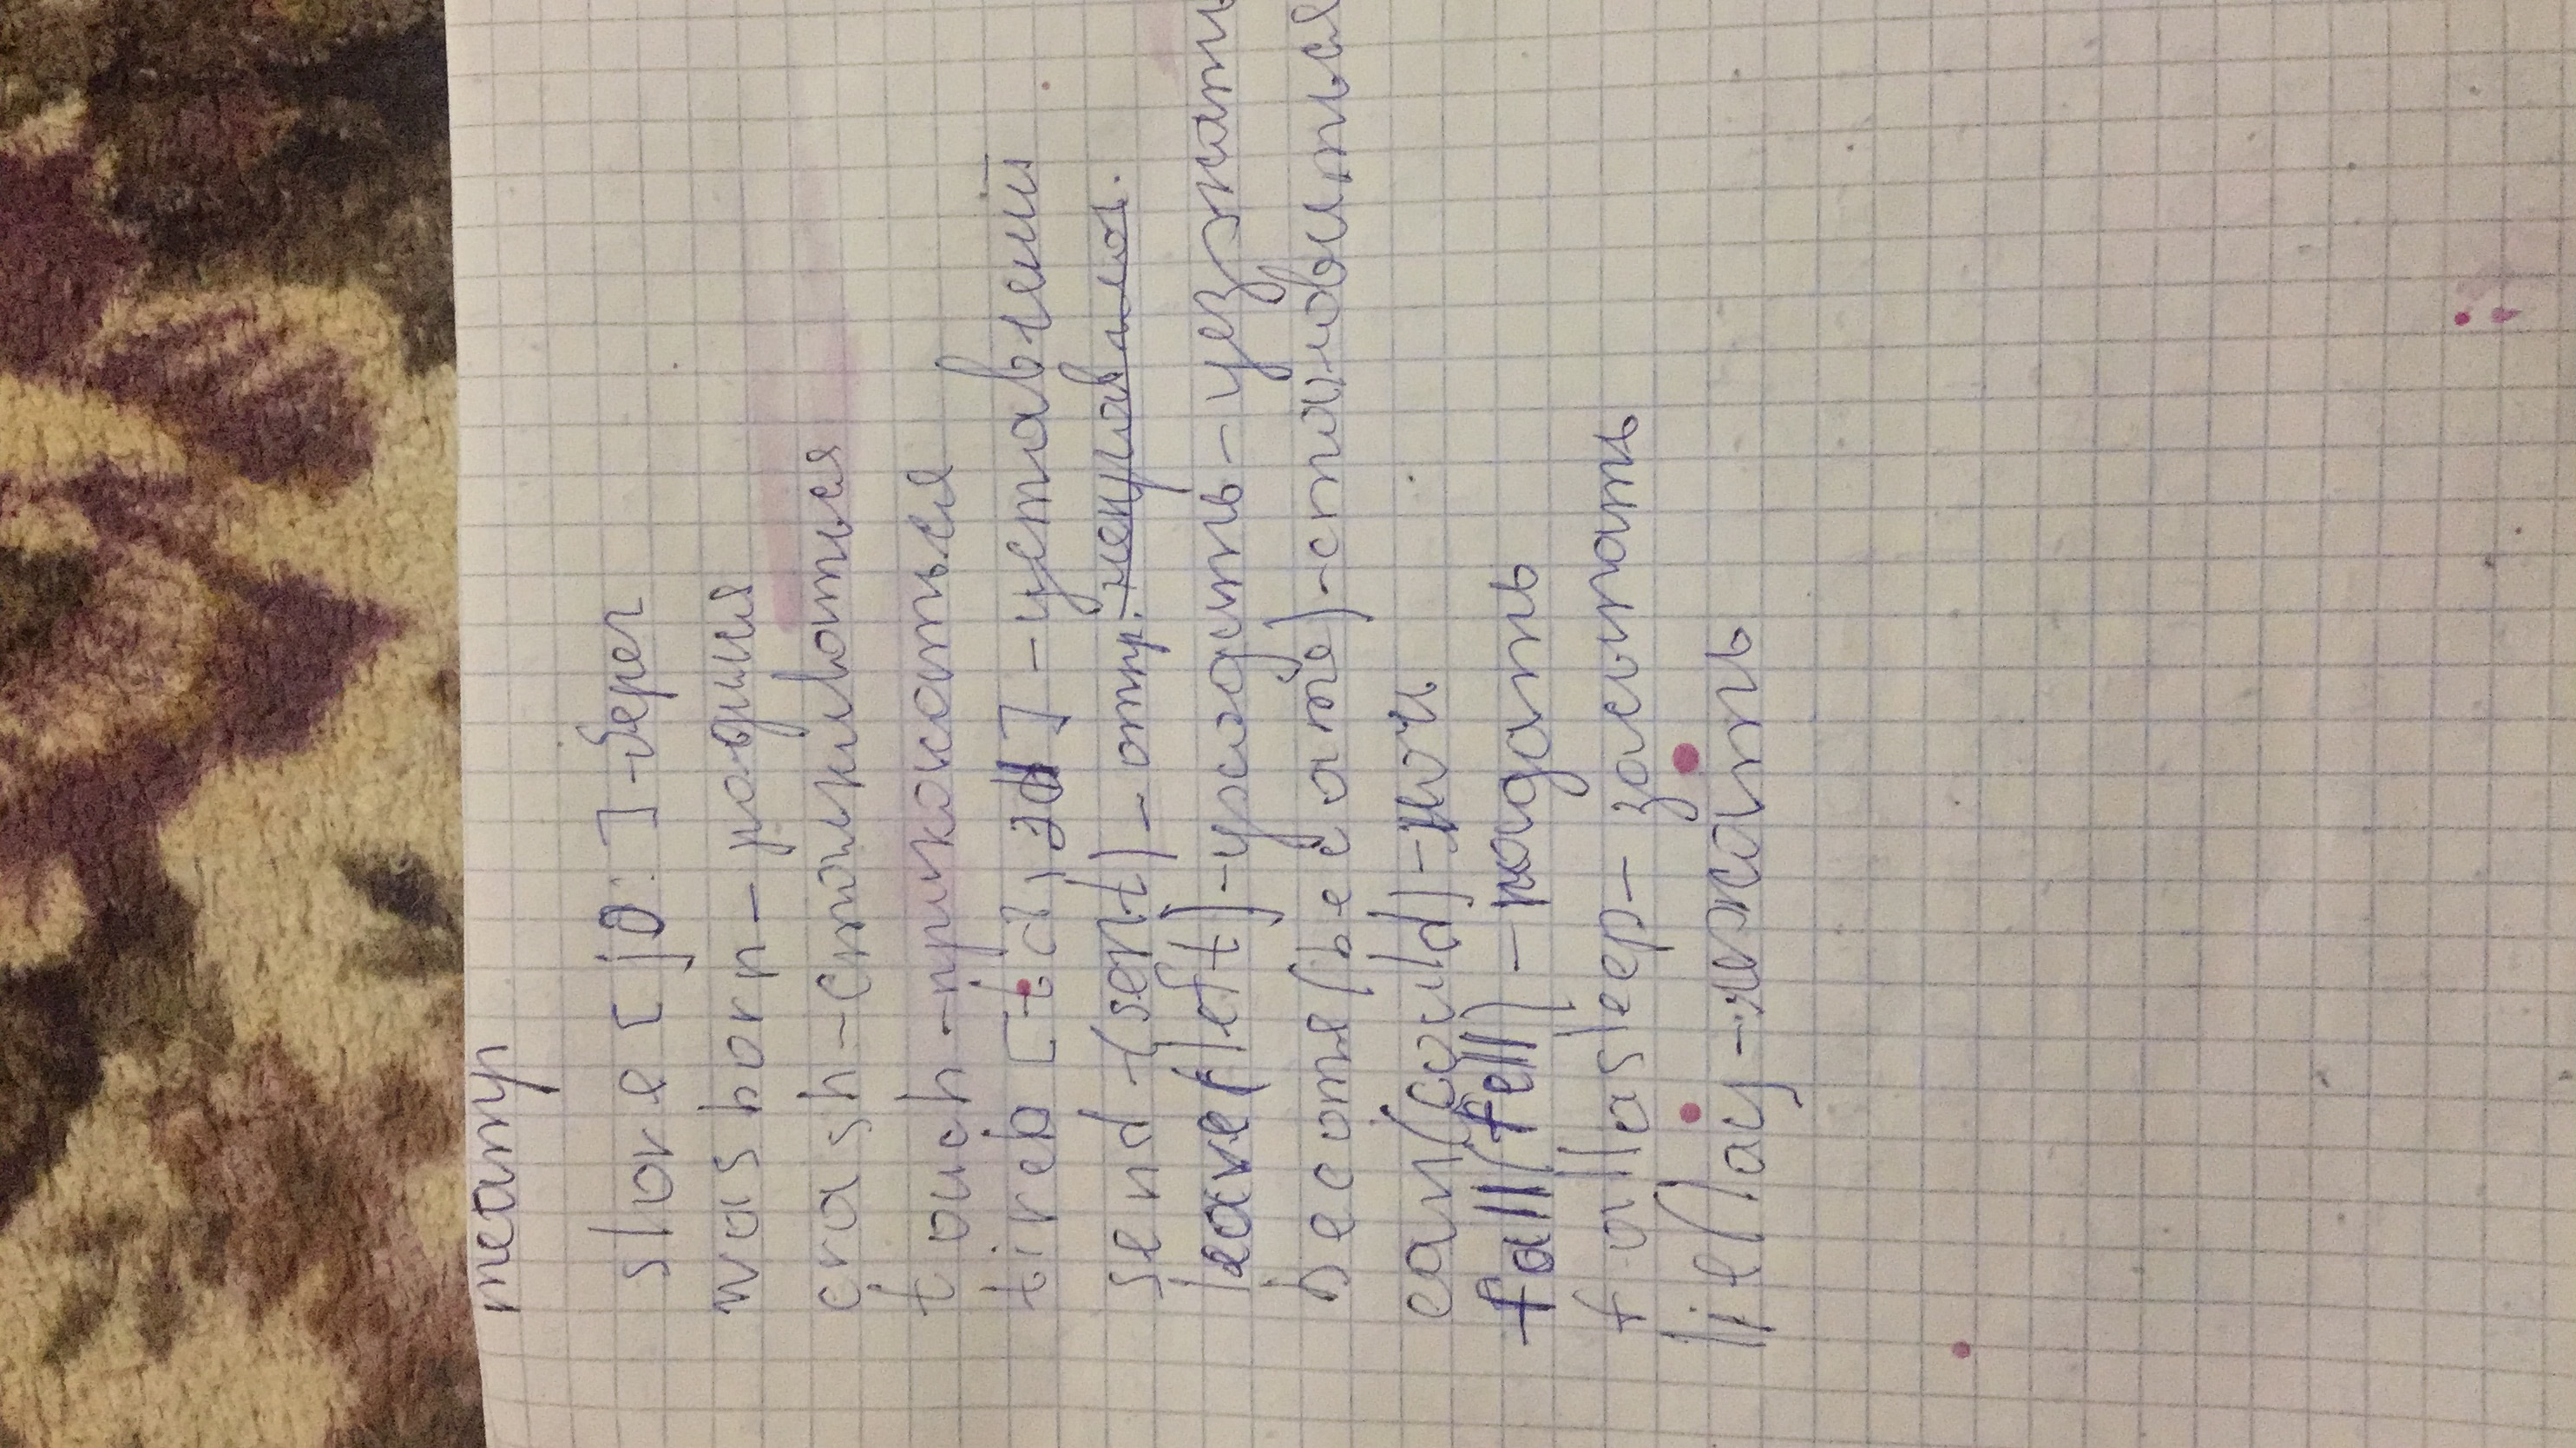 театр
shore [ jo: ] - берег
was born - родился
crash - сталкиваться
touch - прикосаться
tired [taiəd] - уставлений
send - (sent) - отпр.
leave (left) - уходить - уезжать
become (became) - становиться
can (could) - мочь
fall (fell) - падать
fall asleep - засыпать
lie (lay - лежать